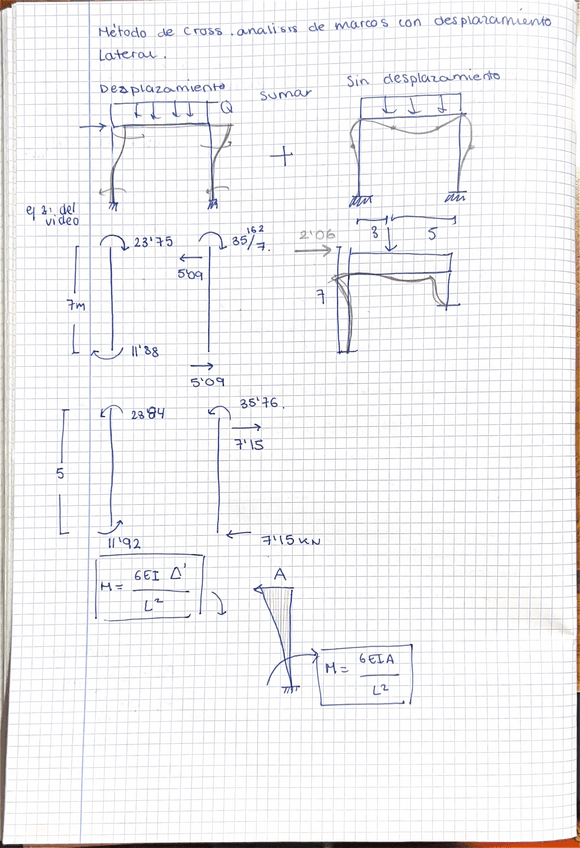 Método de cross. analisis de marcos con desplazamiento
Lateral.
Desplazamiento sumar sin desplazamiento
Q
+
ej 2: del
video
23'75
35'62/7.
5'09
2'06
3 5
7m
7
11'88
5'09
23'84
35'76.
7'15
5
11'92
7'15 KN
M = 6EI Δ' / L²
A
M = 6EIA / L²